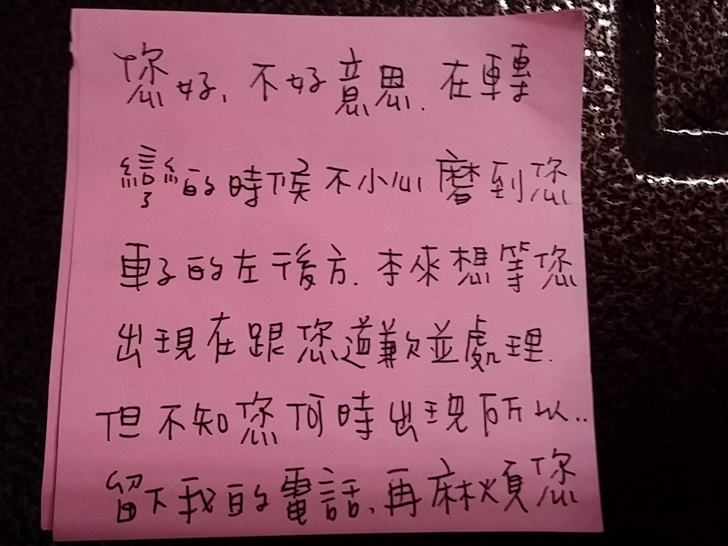 您好,不好意思.在轉
彎的時候不小心磨到您
車子的左後方.本來想等您
出現在跟您道歉並處理.
但不知您何時出現所以..
留下我的電話,再麻煩您